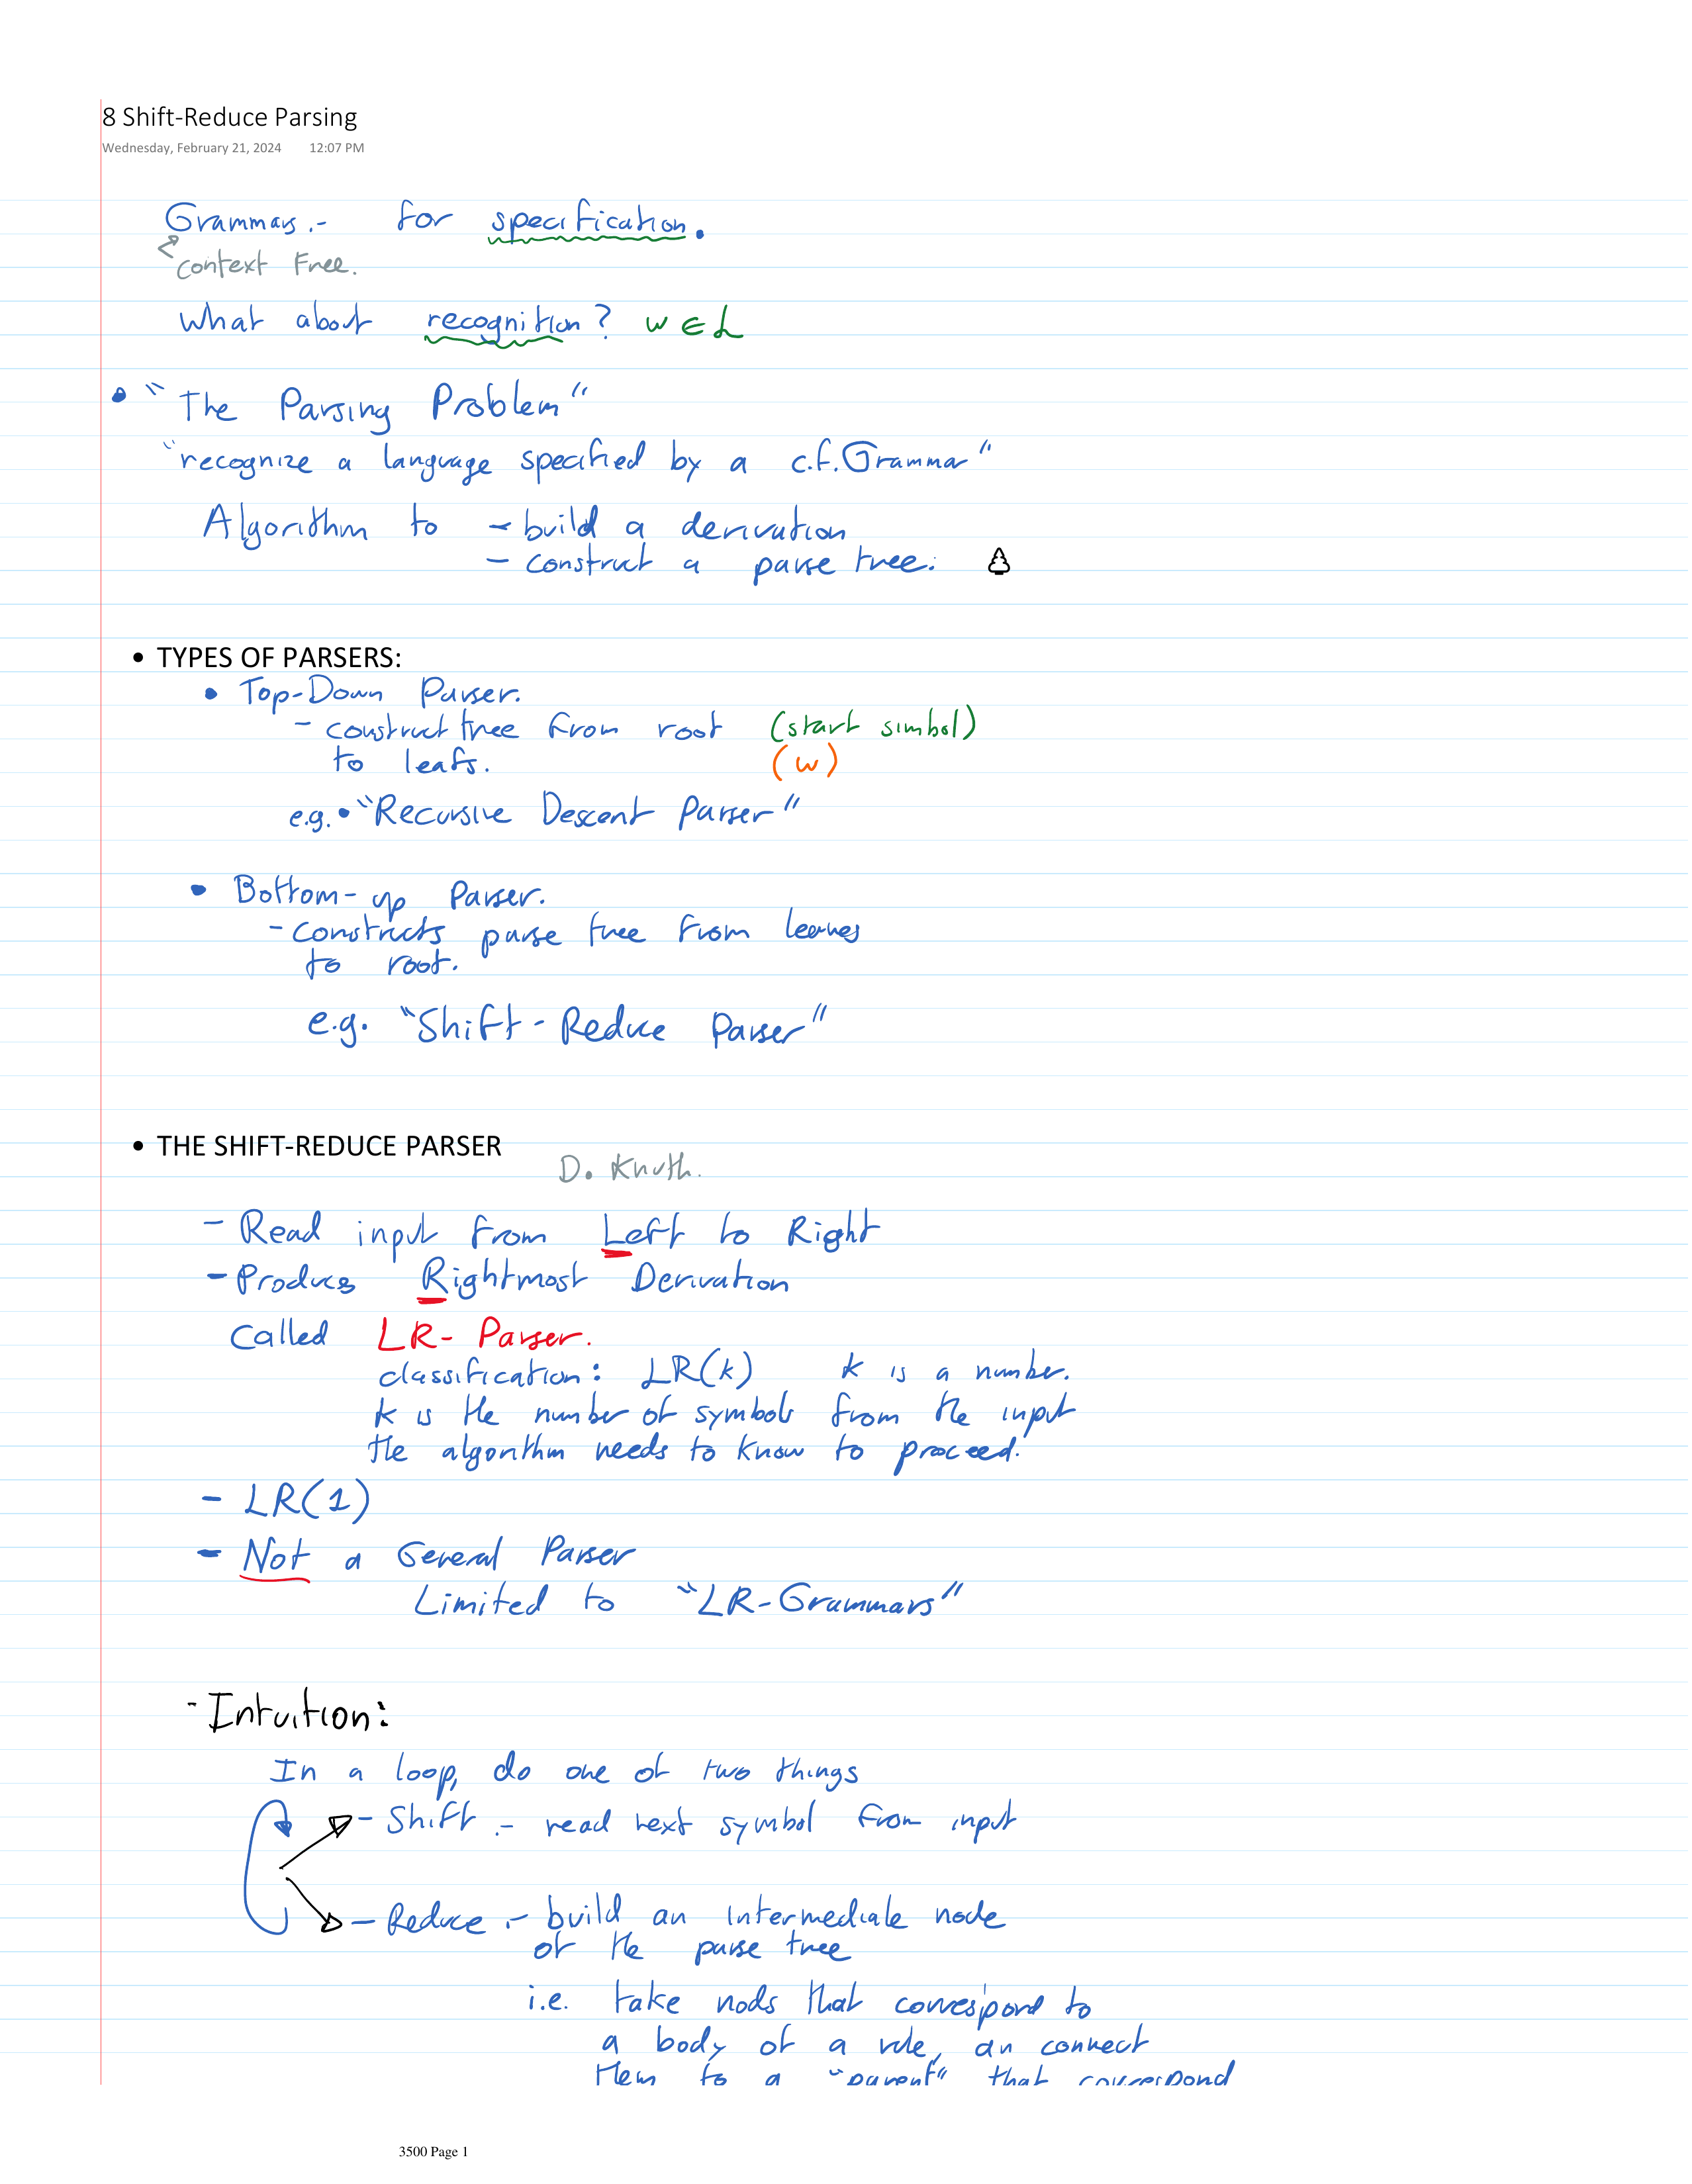 8 Shift-Reduce Parsing
Wednesday, February 21, 2024 12:07 PM
Grammars.- for specification.
context Free.
What about recognition? w ∈ L
• "The Parsing Problem"
"recognize a language specified by a c.f. Grammar"
Algorithm to - build a derivation
- construct a parse tree.
• TYPES OF PARSERS:
• Top-Down Parser.
- construct tree from root (start simbol)
to leafs. (w)
e.g. • "Recursive Descent Parser"
• Bottom-up Parser.
- constructs parse tree from leaves
to root.
e.g. "Shift-Reduce Parser"
• THE SHIFT-REDUCE PARSER
D. Knuth.
- Read input from Left to Right
- Produces Rightmost Derivation
Called LR-Parser.
classification: LR(k) k is a number.
k is the number of symbols from the input
the algorithm needs to know to proceed.
- LR(1)
- Not a General Parser
Limited to "LR-Grammars"
- Intuition:
In a loop, do one of two things
- Shift .- read next symbol from input
- Reduce .- build an intermediate node
of the parse tree
i.e. take nods that correspond to
a body of a rule, an connect
them to a "parent" that correspond
3500 Page 1